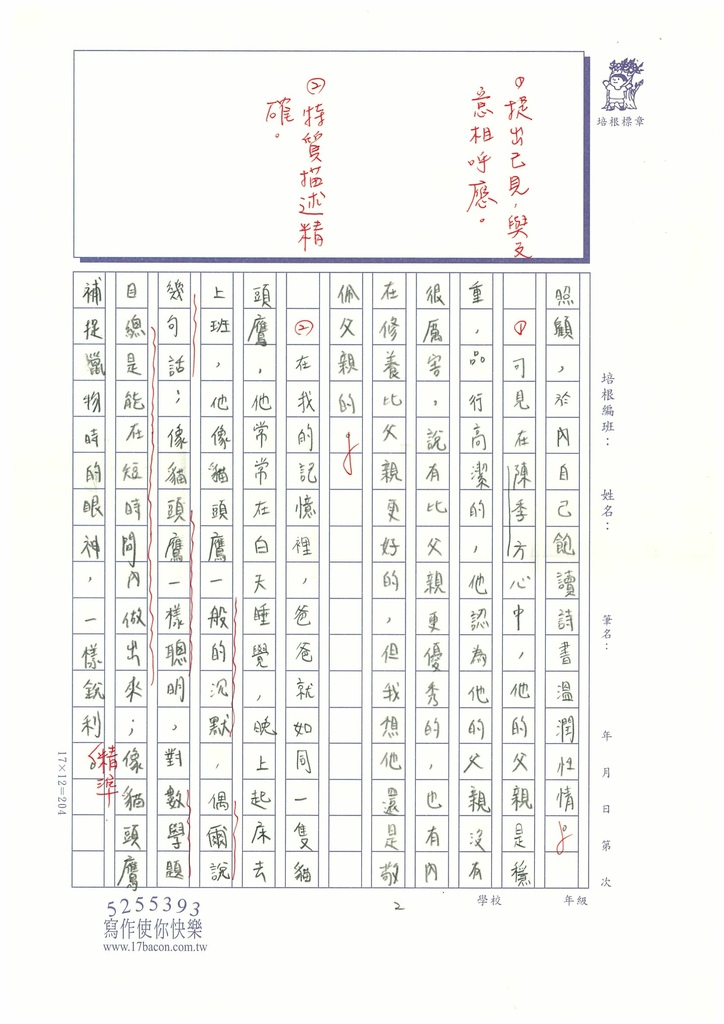 ①提出己見，與文
意相呼應。
②特質描述精
確。
培根標章
培根編班：
姓名：
筆名：
年 月 日 第 次
照顧，於內自己飽讀詩書溫潤性情
①可見在陳季方心中，他的父親是穩
重，品行高潔的，他認為他的父親沒有
很厲害，說有比父親更優秀的，也有內
在修養比父親更好的，但我想他還是敬
佩父親的
②在我的記憶裡，爸爸就如同一隻貓
頭鷹，他常常在白天睡覺，晚上起床去
上班，他像貓頭鷹一般的沉默，偶爾說
幾句話；像貓頭鷹一樣聰明，對數學題
目總是能在短時間內做出來；像貓頭鷹
補捉獵物時的眼神，一樣銳利
精準
17×12=204
學校
年級
2
5255393
寫作使你快樂
www.17bacon.com.tw